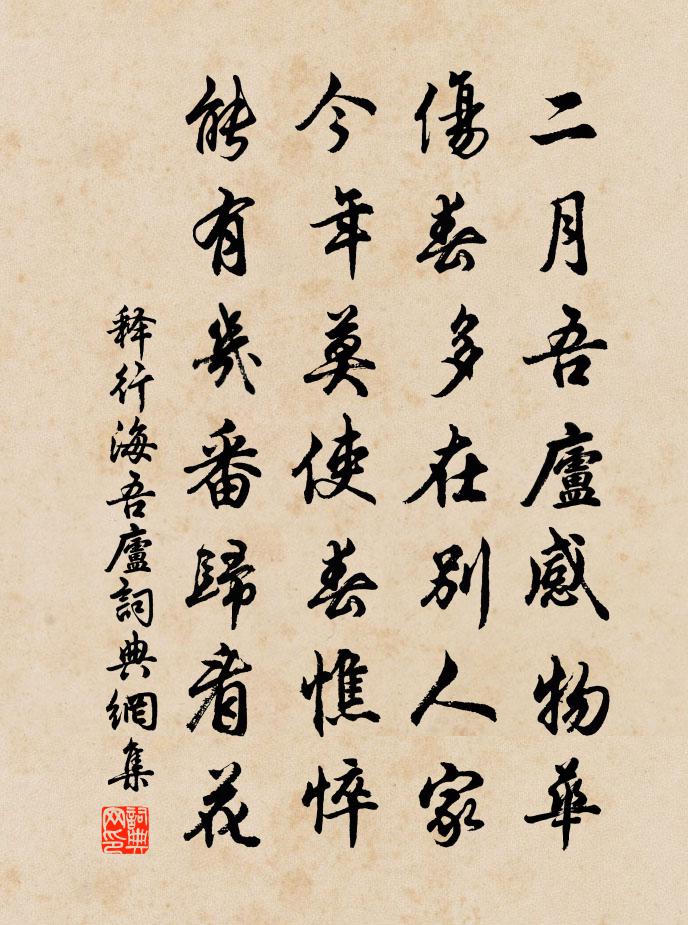 二月吾廬感物華
傷春多在別人家
今年莫使春憔悴
能有幾番歸看花
释行海吾廬詞典網集
詞典网印